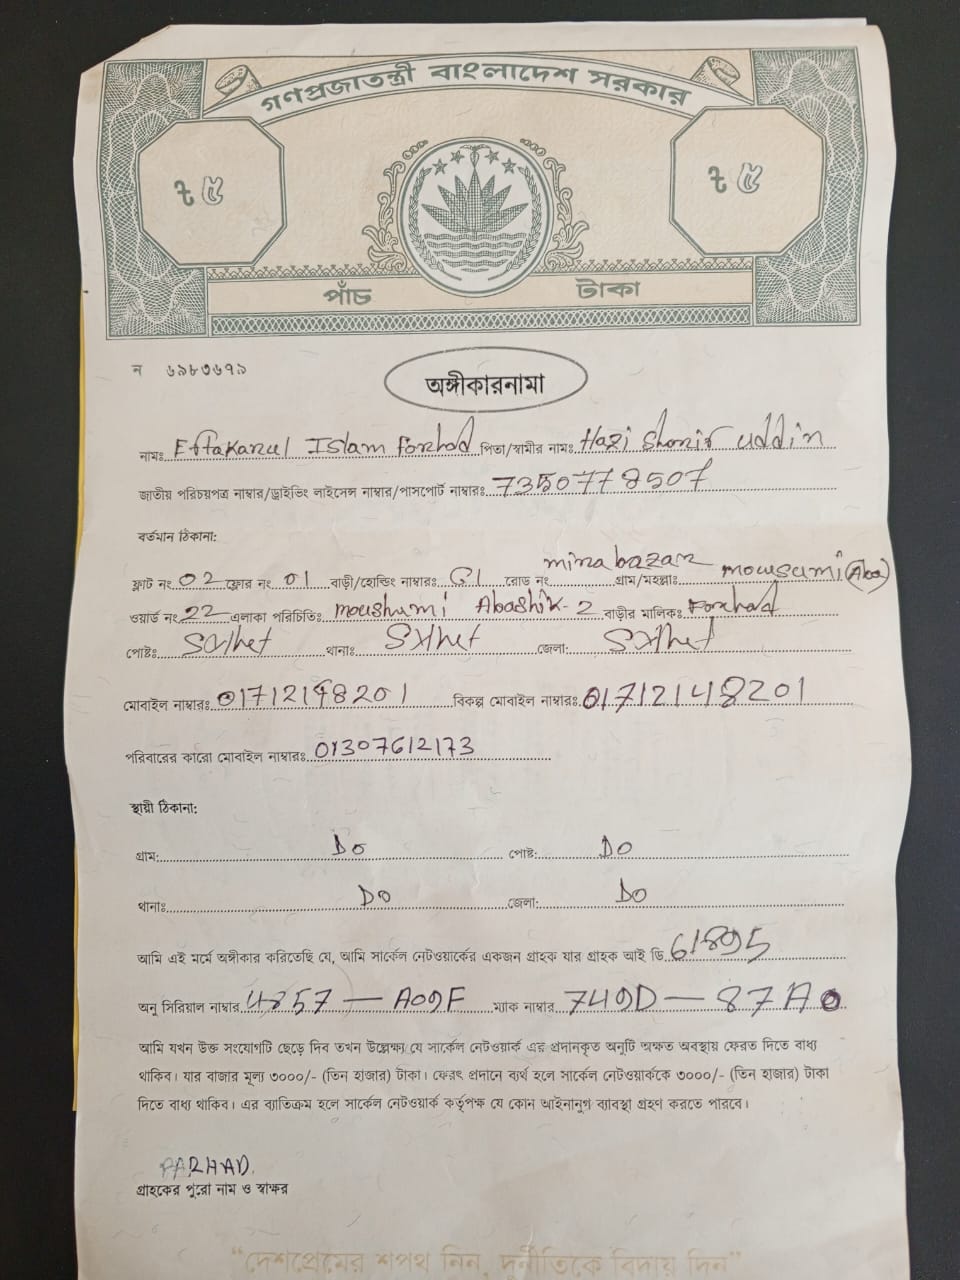 গণপ্রজাতন্ত্রী বাংলাদেশ সরকার
৳ ৫ ৳ ৫
পাঁচ টাকা
ন ৬৯৮৩৬৭৯
অঙ্গীকারনামা
নামঃ Eftakarul Islam Forhad পিতা/স্বামীর নামঃ Hazi Shorif uddin
জাতীয় পরিচয়পত্র নাম্বার/ড্রাইভিং লাইসেন্স নাম্বার/পাসপোর্ট নাম্বারঃ 7350778507
বর্তমান ঠিকানা:
ফ্লাট নং 02 ফ্লোর নং 01 বাড়ী/হোল্ডিং নাম্বারঃ G1 রোড নং mina bazar গ্রাম/মহল্লাঃ mousumi (Aba)
ওয়ার্ড নং 22 এলাকা পরিচিতিঃ moushumi Abashik-2 বাড়ীর মালিকঃ Forhad
পোষ্টঃ Sylhet থানাঃ Sylhet জেলা: Sylhet
মোবাইল নাম্বারঃ 01712148201 বিকল্প মোবাইল নাম্বারঃ 01712148201
পরিবারের কারো মোবাইল নাম্বারঃ 01307612173
স্থায়ী ঠিকানা:
গ্রাম: Do পোষ্ট: Do
থানাঃ Do জেলা: Do
আমি এই মর্মে অঙ্গীকার করিতেছি যে, আমি সার্কেল নেটওয়ার্কের একজন গ্রাহক যার গ্রাহক আই ডি 61895
অনু সিরিয়াল নাম্বার 4857 — A09F ম্যাক নাম্বার 749D — 87A0
আমি যখন উক্ত সংযোগটি ছেড়ে দিব তখন উল্লেক্ষ্য যে সার্কেল নেটওয়ার্ক এর প্রদানকৃত অনুটি অক্ষত অবস্থায় ফেরত দিতে বাধ্য
থাকিব। যার বাজার মূল্য ৩০০০/- (তিন হাজার) টাকা। ফেরৎ প্রদানে ব্যর্থ হলে সার্কেল নেটওয়ার্ককে ৩০০০/- (তিন হাজার) টাকা
দিতে বাধ্য থাকিব। এর ব্যতিক্রম হলে সার্কেল নেটওয়ার্ক কর্তৃপক্ষ যে কোন আইনানুগ ব্যাবস্থা গ্রহণ করতে পারবে।
FARHAD.
গ্রাহকের পুরো নাম ও স্বাক্ষর
“দেশপ্রেমের শপথ নিন, দুর্নীতিকে বিদায় দিন”